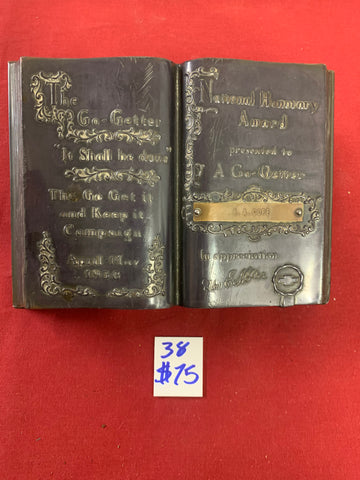 The
Go-Getter
"It Shall be done"
The Go Get it
and Keep it
Campaign
April May
National Honorary
Award
presented to
A Go-Getter
In appreciation
38
$75